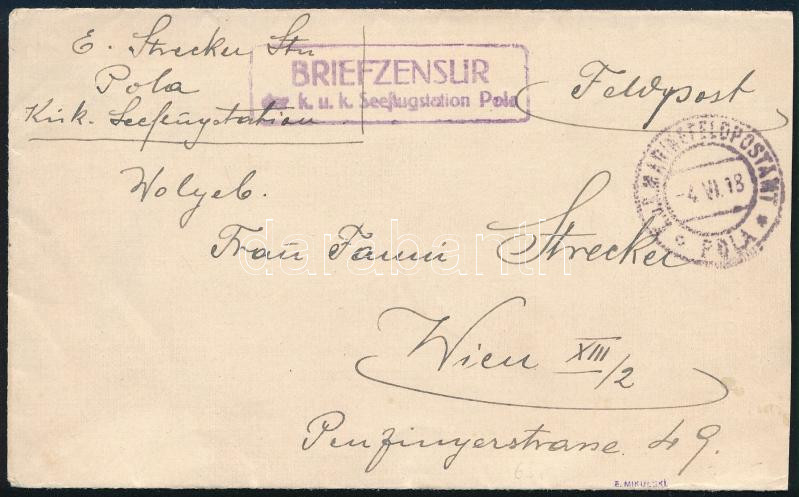 E. Strecker Stn
Pola
K.u.k. Seeflugstation
BRIEFZENSUR
der k. u. k. Seeflugstation Pola
Feldpost
K.U.K. MARINEFELDPOSTAMT
-4.VI.18
c POLA *
Wolgeb.
Frau Fanni Strecker
Wien XIII/2
Penzingerstrasse 49.
darabanth
E. MIKULSKI